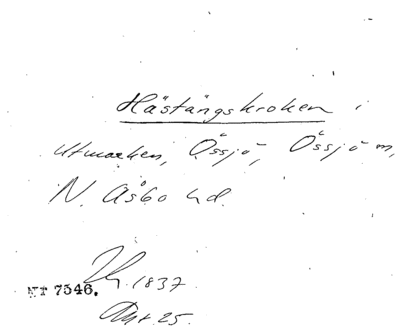 Hästängskroken i
Utmarken, Össjö, Össjö sn,
N. Åsbo hd.
1837.
NT 7546.
Akt 25.